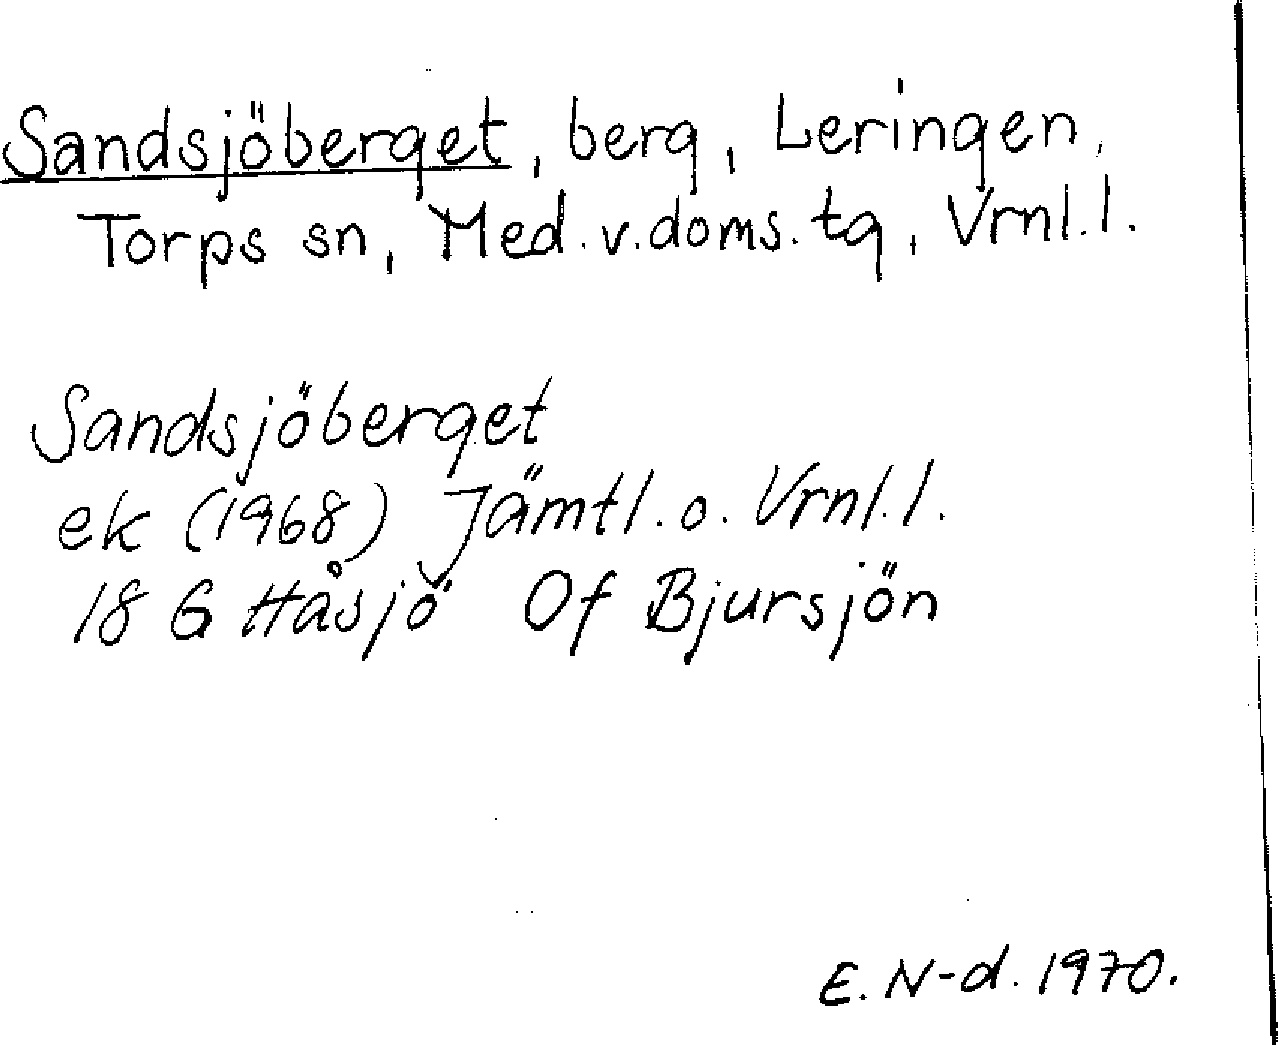 Sandsjöberget, berg, Leringen,
Torps sn, Med.v.doms.tg, Vrnl.l.
Sandsjöberget
ek (1968) Jämtl.o. Vrnl.l.
18 G Håsjö Of Bjursjön
E. N-d. 1970.